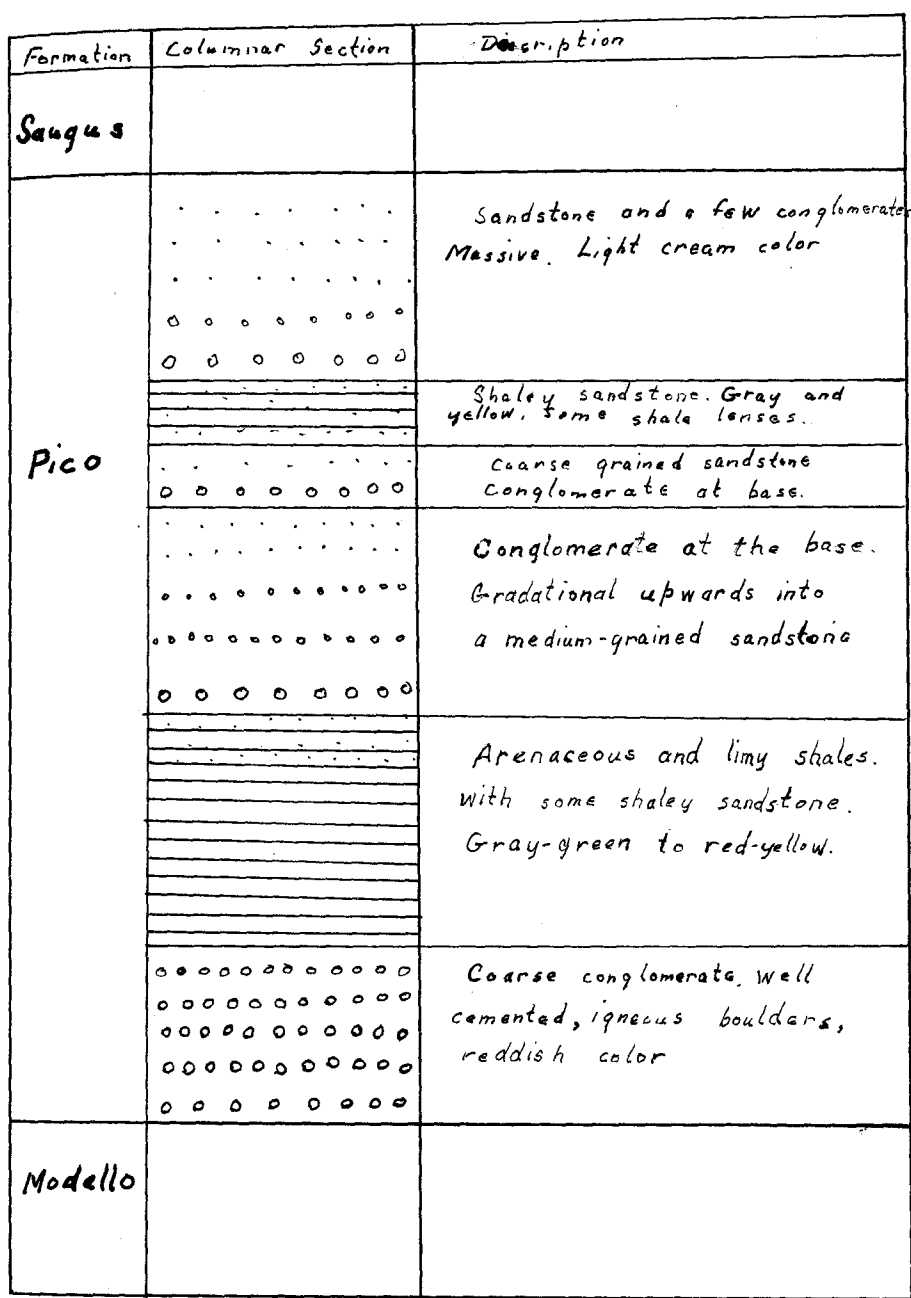 Formation Columnar Section Discription
Saugus
Sandstone and a few conglomerates
Massive. Light cream color
Shaley sandstone. Gray and
yellow. Some shale lenses.
Pico
Coarse grained sandstone
Conglomerate at base.
Conglomerate at the base.
Gradational upwards into
a medium-grained sandstone
Arenaceous and limy shales.
with some shaley sandstone.
Gray-green to red-yellow.
Coarse conglomerate, well
cemented, igneous boulders,
reddish color
Modello